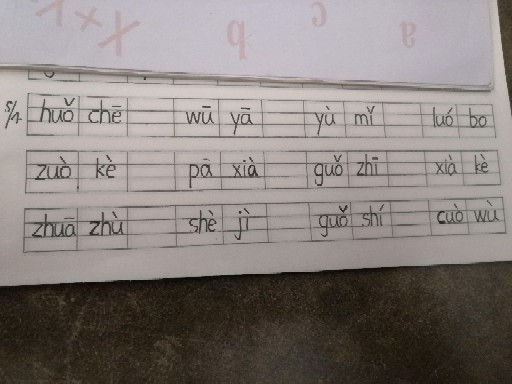 5/1. huǒ chē wū yā yù mǐ luó bo
zuò kè pā xià guǒ zhī xià kè
zhuā zhù shè jì guǒ shí cuò wù